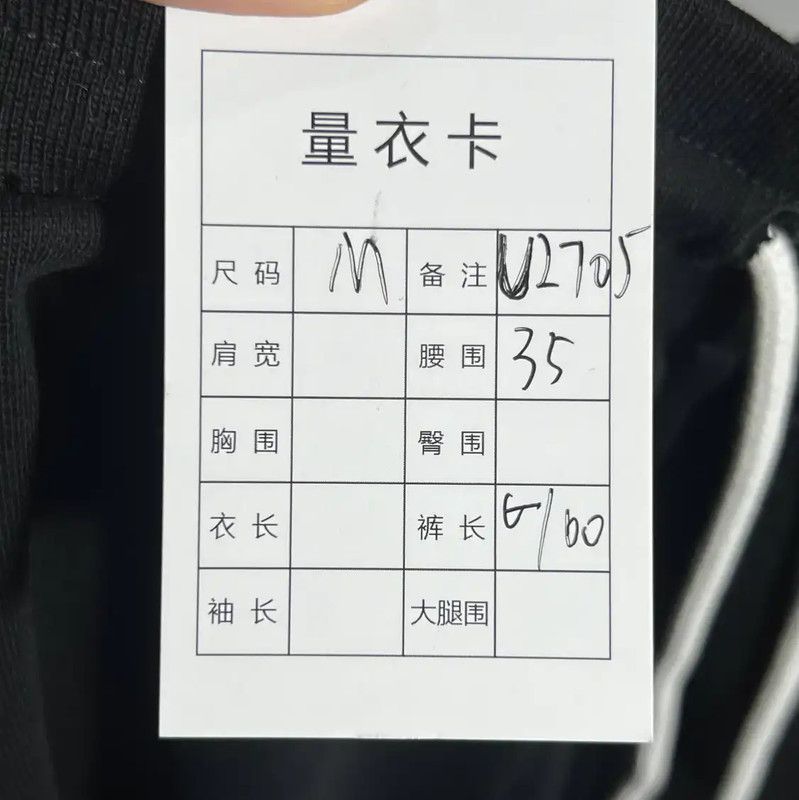 量衣卡
尺码 M 备注 U2705
肩宽 腰围 35
胸围 臀围
衣长 裤长
袖长 大腿围